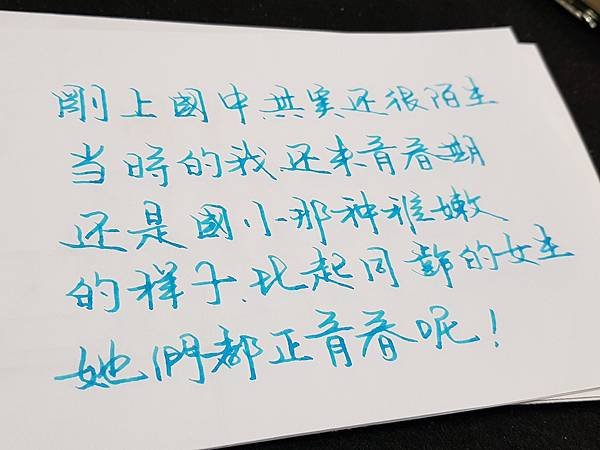 剛上國中.其实还很陌生
当時的我.还未青春期
还是國小那种稚嫩
的样子.比起同龄的女生
她們都正青春呢!